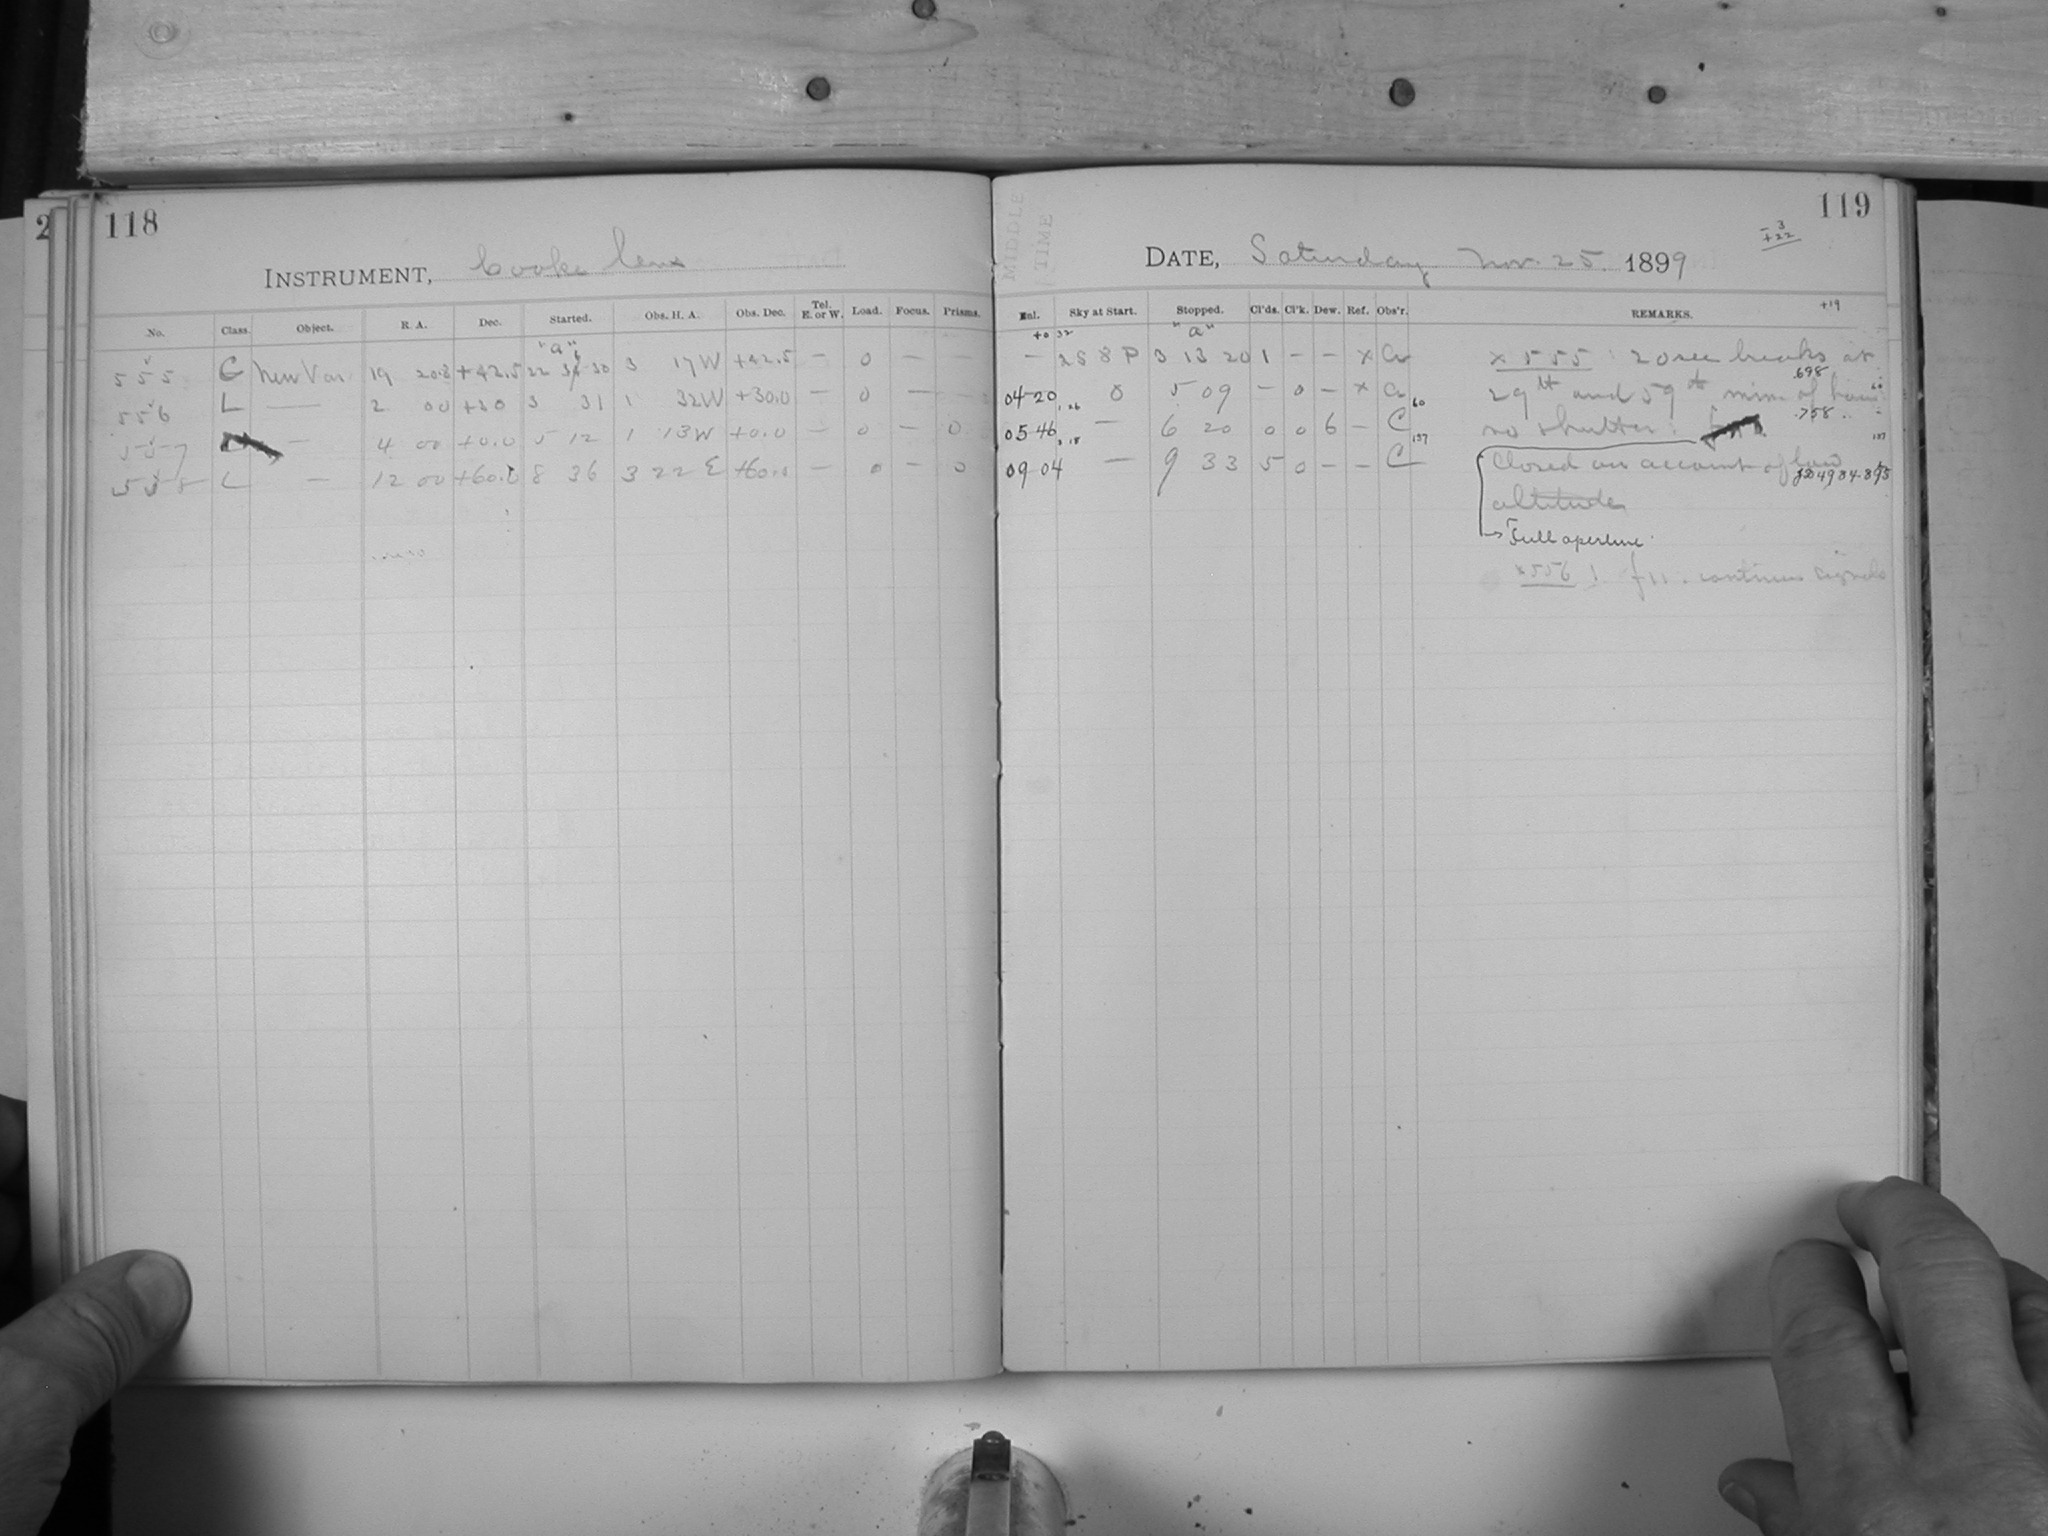 118
INSTRUMENT, Cooke lens
No. Class. Object. R. A. Dec. Started. Obs. H. A. Obs. Dec. Tel. E. or W. Load. Focus. Prisms.
"a"
555 C New Var 19 20.8 +42.5 22 30 3 17 W +42.5 — 0 — —
556 L — 2 00 +30 3 31 1 32 W +30.0 — 0 —
557 — 4 00 +0.0 5 12 1 13 W +0.0 — 0 — 0
558 L — 12 00 +60.0 8 36 3 22 E +60.0 — 0 — 0
119
MIDDLE
TIME
-3
+22
DATE, Saturday Nov. 25. 1899
Sky at Start. Stopped. Cl'ds. Cl'k. Dew. Ref. Obs'r. REMARKS. +19
+0 32 "a"
— 2 S 8 P 3 13 20 1 — — x x 555 : 20 sec breaks at
.698
04-20 0 5 09 — 0 — x 29th and 59th min. of hour 60
1.26 60 .758
05-46 — 6 20 0 0 6 — C no shutter.
3 18 137 137
09 04 — 9 33 5 0 — — C Closed on account of low
4984.895
altitude
→ Full aperture.
x 556 : f 11. continues signals